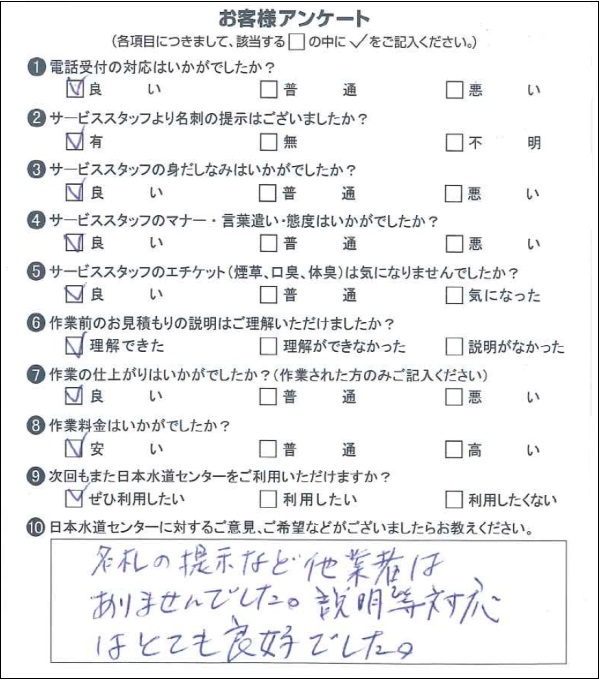 お客様アンケート
(各項目につきまして、該当する□の中に✓をご記入ください。)
❶電話受付の対応はいかがでしたか?
☑良い □普通 □悪い
❷サービススタッフより名刺の提示はございましたか?
☑有 □無 □不明
❸サービススタッフの身だしなみはいかがでしたか?
☑良い □普通 □悪い
❹サービススタッフのマナー・言葉遣い・態度はいかがでしたか?
☑良い □普通 □悪い
❺サービススタッフのエチケット(煙草、口臭、体臭)は気になりませんでしたか?
☑良い □普通 □気になった
❻作業前のお見積もりの説明はご理解いただけましたか?
☑理解できた □理解ができなかった □説明がなかった
❼作業の仕上がりはいかがでしたか?(作業された方のみご記入ください)
☑良い □普通 □悪い
❽作業料金はいかがでしたか?
☑安い □普通 □高い
❾次回もまた日本水道センターをご利用いただけますか?
☑ぜひ利用したい □利用したい □利用したくない
❿日本水道センターに対するご意見、ご希望などがございましたらお教えください。
名札の提示など他業者は
ありませんでした。説明等対応
はとても良好でした。